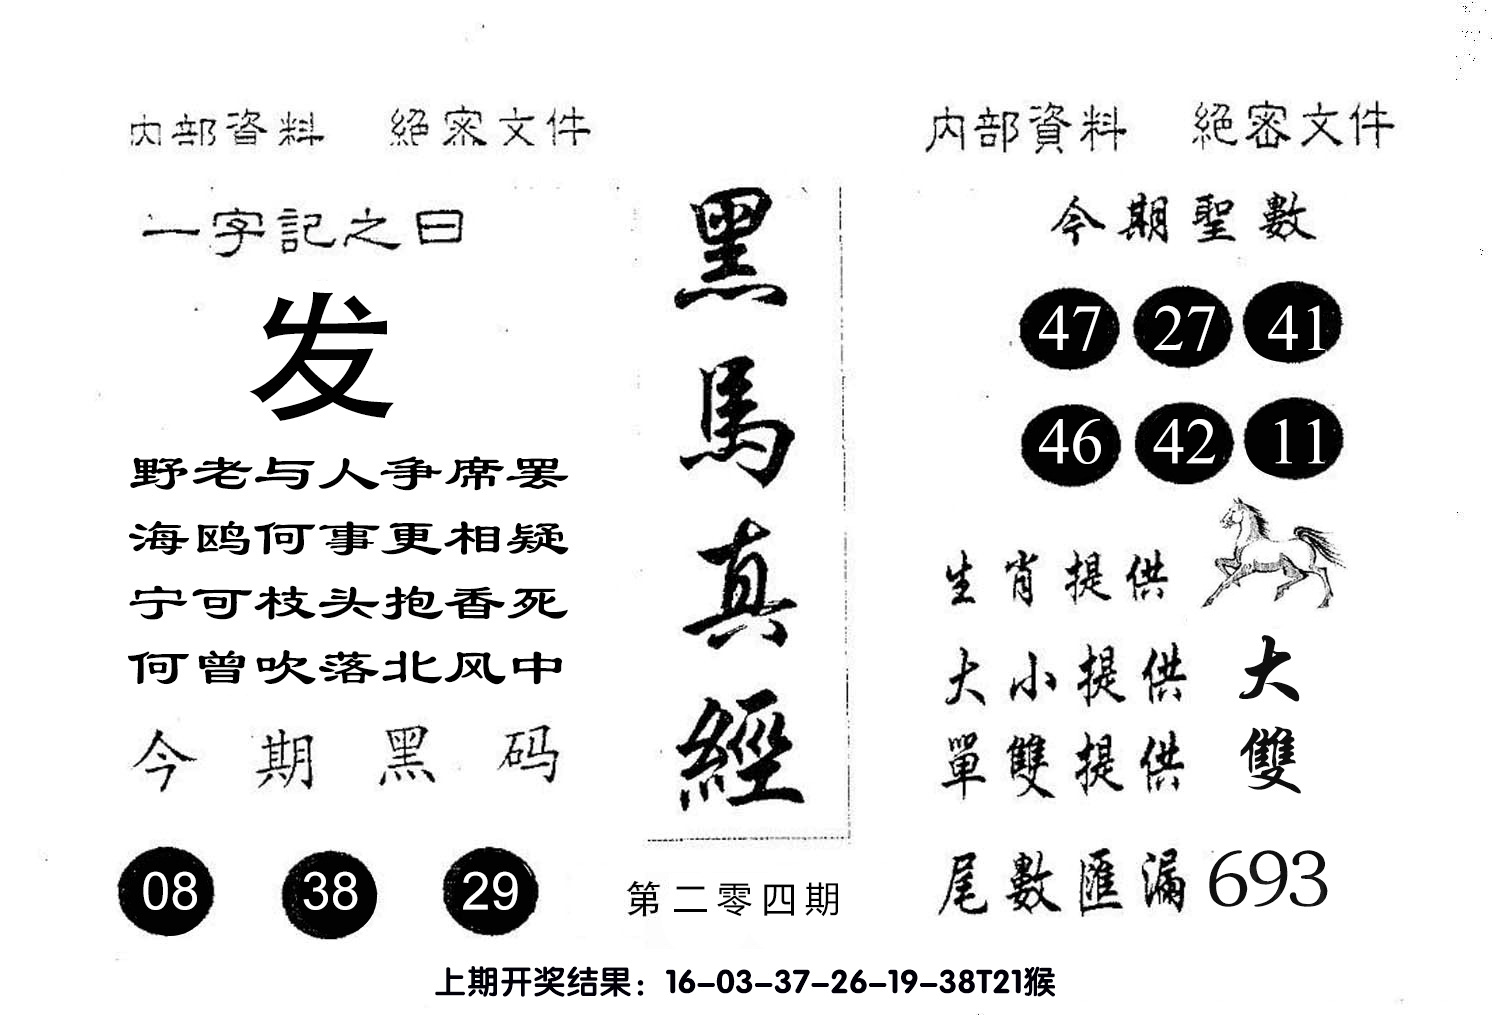 内部資料 絕密文件
一字記之曰
发
野老与人争席罢
海鸥何事更相疑
宁可枝头抱香死
何曾吹落北风中
今期黑码
08 38 29
黑馬真經
第二零四期
内部資料 絕密文件
今期聖數
47 27 41
46 42 11
生肖提供
大小提供 大
單雙提供 雙
尾數匯漏 693
上期开奖结果：16-03-37-26-19-38T21猴